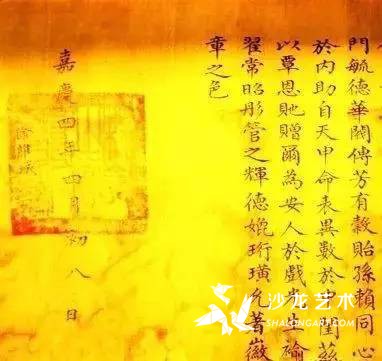 門毓德華閥傳芳有穀貽孫賴同心
於內助自天申命表異數於中閨茲
以覃恩貤贈爾為安人於戲
翟常昭彤管之輝德媲珩璜允著徽
章之色
嘉慶四年四月初八日
沙龙艺术
SHALONGART.COM